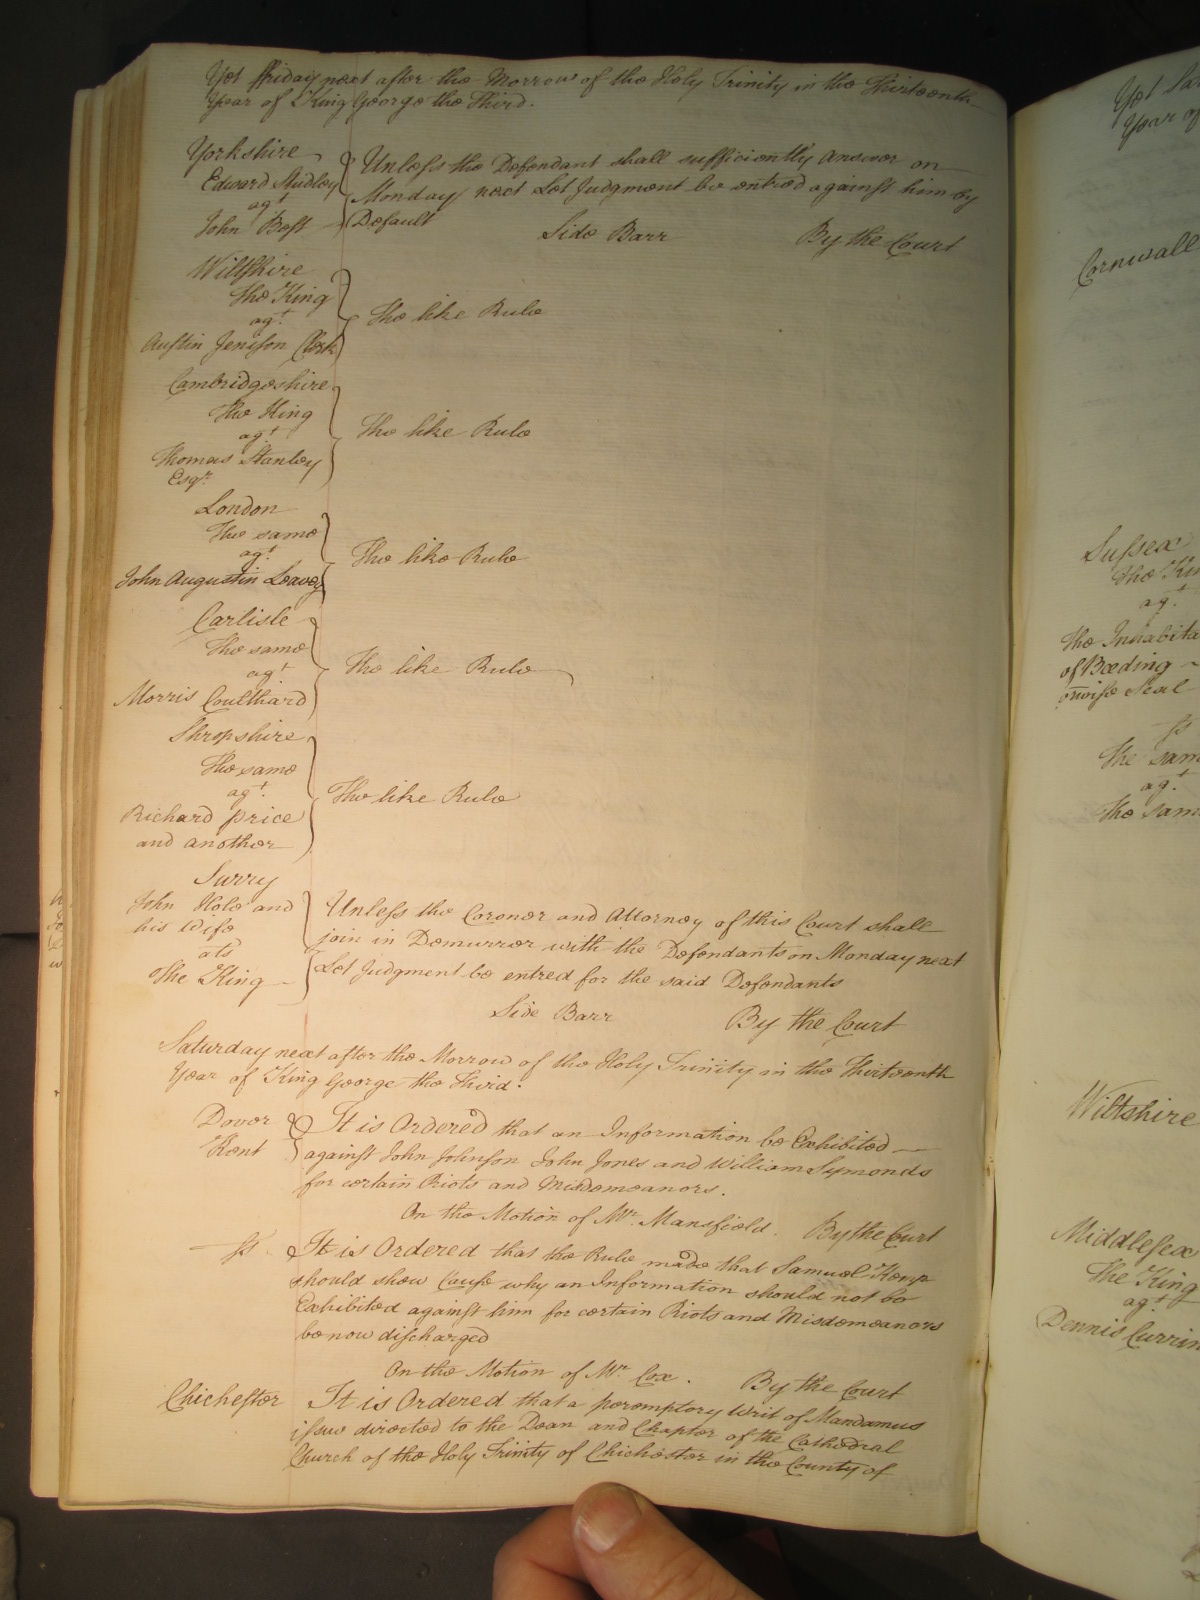 Yet Friday next after the Morrow of the Holy Trinity in the Thirteenth
Year of King George the Third.
Yorkshire
Edward Studley
agt
John Best
Unless the Defendant shall sufficiently answer on
Monday next Let Judgment be entred against him by
Default
Side Barr By the Court
Wiltshire
The King
agt.
Austin Jenison Clerk
The like Rule
Cambridgeshire
The King
agt.
Thomas Stanley
Esqr.
The like Rule
London
The same
agt.
John Augustin Leavey
The like Rule
Carlisle
The same
agt.
Morris Coulthard
The like Rule
Shropshire
The same
agt.
Richard price
and another
The like Rule
Surry
John Hole and
his Wife
ats
The King
Unless the Coroner and Attorney of this Court shall
join in Demurrer with the Defendants on Monday next
Let Judgment be entred for the said Defendants
Side Barr By the Court
Saturday next after the Morrow of the Holy Trinity in the Thirteenth
Year of King George the Third.
Dover
Kent
It is Ordered that an Information be Exhibited
against John Johnson John Jones and William Symonds
for certain Riots and Misdemeanors.
On the Motion of Mr. Mansfield. By the Court
ss
It is Ordered that the Rule made that Samuel Kemp
should show Cause why an Information should not be
Exhibited against him for certain Riots and Misdemeanors
be now discharged
On the Motion of Mr. Cox. By the Court
Chichester
It is Ordered that a peremptory Writ of Mandamus
issue directed to the Dean and Chapter of the Cathedral
Church of the Holy Trinity of Chichester in the County of
Yet
Year of
Cornwall
Sussex
The
agt.
The
of Beeding
Seal
ss
The
agt.
The
Wiltshire
Middlesex
The King
agt.
Dennis